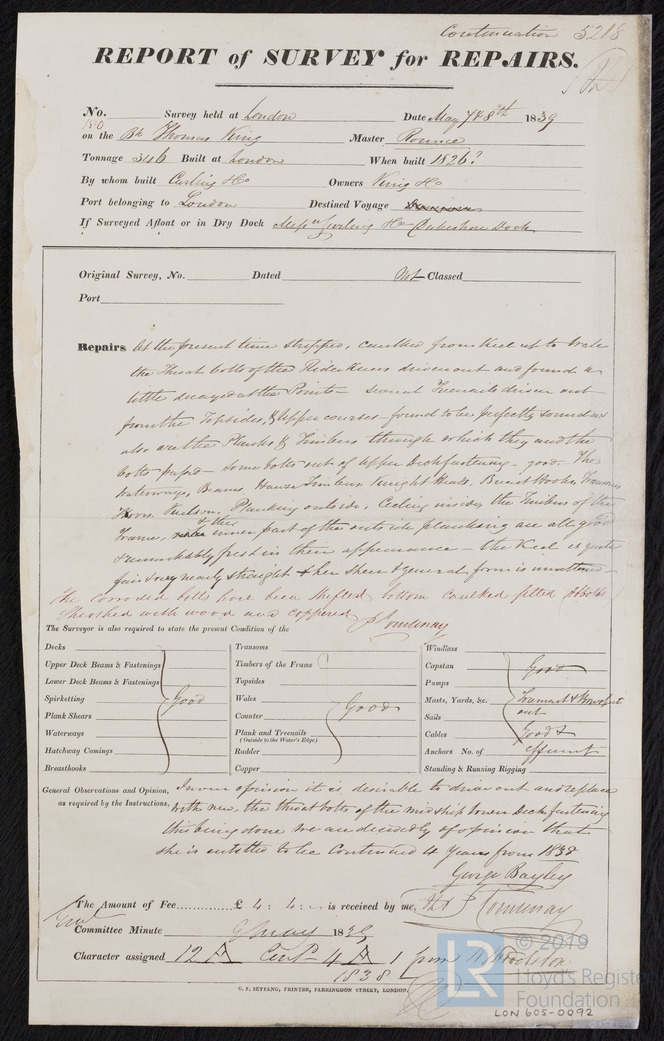 Continuation 5218
REPORT of SURVEY for REPAIRS.
No. 180 Survey held at London Date May 7 & 8th 1839
on the Bk Thomas King Master Rounce
Tonnage 346 Built at London When built 1826?
By whom built Curling & Co Owners King & Co
Port belonging to London Destined Voyage
If Surveyed Afloat or in Dry Dock Messrs Curling & Co Dukeshore Dock
Original Survey, No. Dated Not Classed
Port
Repairs At the present time stripped, caulked from Keel up to Wale
the throat bolts of the Rider Knees driven out and found a
little decayed at the Points - several Treenails driven out
from the Topsides, & Upper courses - found to be perfectly sound as
also are the Planks & Timbers through which they and the
bolts pass'd - some bolts out of Upper Deck fastening - good. The
Waterways, Beams, Hawse Timbers Knight Heads, Breast Hooks,
Keelson, Planking outside, Ceiling inside, the Timbers of the
Frame, & the inner part of the outside planking are all good
& remarkably fresh in their appearance - the Keel is quite
fair & very nearly straight & her sheer & general form is unaltered -
The corroded bolts have been shifted, bottom caulked felted
sheathed with wood and coppered P Courtenay
The Surveyor is also required to state the present Condition of the
Decks
Upper Deck Beams & Fastenings
Lower Deck Beams & Fastenings
Spirketting Good
Plank Shears
Waterways
Hatchway Comings
Breasthooks
Transoms
Timbers of the Frame
Topsides
Wales Good
Counter
Plank and Treenails
(Outside to the Water's Edge)
Rudder
Copper
Windlass
Capstan Good
Pumps
Masts, Yards, &c. Foremast & Bowsprit
out
Sails
Cables Good &
Anchors No. of efficient
Standing & Running Rigging
General Observations and Opinion, In our opinion it is desirable to drive out and replace
as required by the Instructions, with new, the throat bolts of the midship lower Deck fastening
this being done we are decidedly of opinion that
she is entitled to be Continued 4 Years from 1838
George Bayley
The Amount of Fee £ 4 : 4 : - is received by me, P Courtenay
Committee Minute 9 May 1839
Character assigned 12 A Contd 4 A 1 from
1838
G. F. SEYFANG, PRINTER, FARRINGDON STREET, LONDON.
LR © 2019
Lloyd's Register
Foundation
LON 605-0092